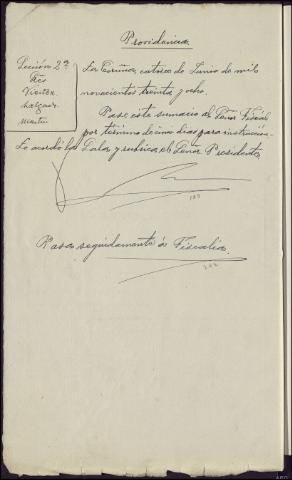 Providencia
Sección 2ª
Sres
Vieitez
Salgado
Martin
La Coruña, catorce de Junio de mil
novecientos treinta y ocho.
Pase este sumario al Señor Fiscal
por término de cinco dias para instrucción.
Lo acordó la Sala y rubrica el Señor Presidente
Pasa seguidamente á Fiscalía.